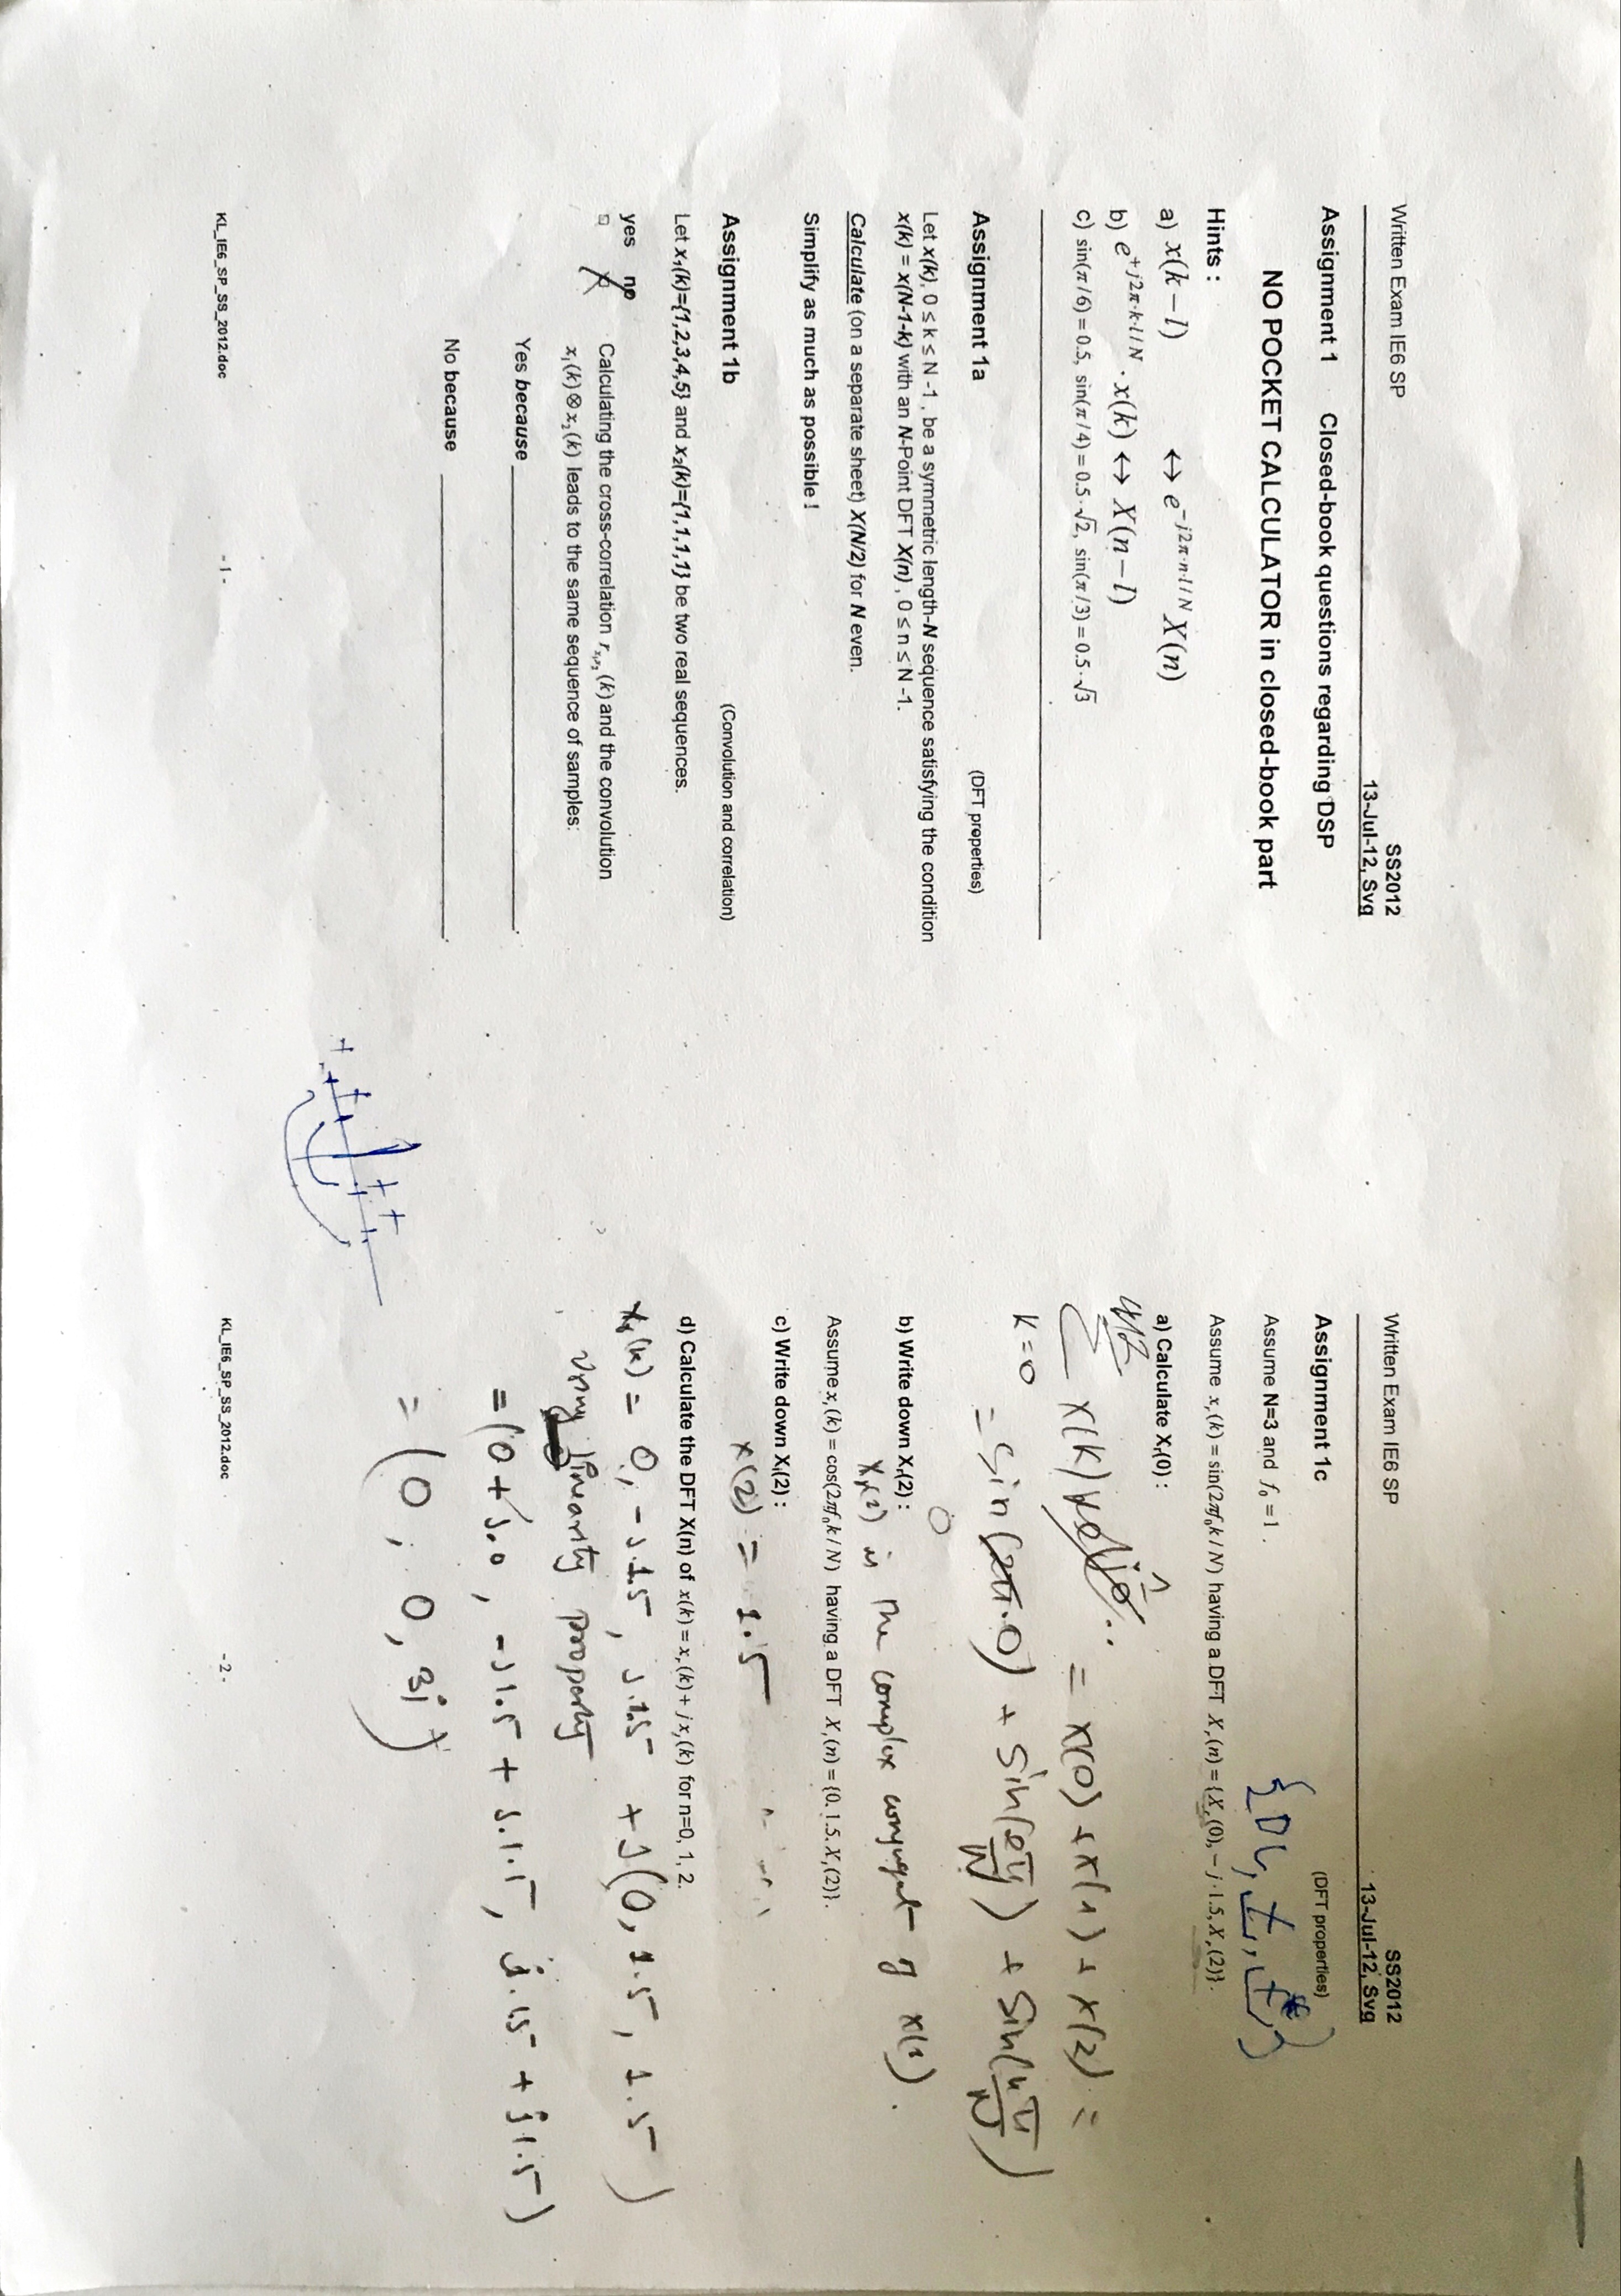 Written Exam IE6 SP
SS2012
13-Jul-12, Svg
Assignment 1 Closed-book questions regarding DSP
NO POCKET CALCULATOR in closed-book part
Hints :
a) x(k−l) ↔ e^{−j2π·n·l/N} X(n)
b) e^{+j2π·k·l/N} · x(k) ↔ X(n−l)
c) sin(π/6) = 0.5, sin(π/4) = 0.5·√2, sin(π/3) = 0.5·√3
Assignment 1a (DFT properties)
Let x(k), 0 ≤ k ≤ N -1 , be a symmetric length-N sequence satisfying the condition
x(k) = x(N-1-k) with an N-Point DFT X(n) , 0 ≤ n ≤ N -1.
Calculate (on a separate sheet) X(N/2) for N even.
Simplify as much as possible !
Assignment 1b (Convolution and correlation)
Let x₁(k)={1,2,3,4,5} and x₂(k)={1,1,1,1} be two real sequences.
yes no
Calculating the cross-correlation r_{x₁x₂}(k) and the convolution
x₁(k)⊗x₂(k) leads to the same sequence of samples:
Yes because
No because
KL_IE6_SP_SS_2012.doc - 1 -
Written Exam IE6 SP
SS2012
13-Jul-12, Svg
Assignment 1c (DFT properties)
Assume N=3 and f₀ = 1 .
Assume x_r(k) = sin(2πf₀k / N) having a DFT X_r(n) = {X_r(0), − j·1.5, X_r(2)}.
a) Calculate X_r(0) :
Σ x(k) = x(0) + x(1) + x(2) =
k=0
= sin(2π.0) + sin(2π/N) + sin(4π/N)
0
b) Write down X_r(2) :
X_r(2) is the complex conjugat of x(1).
Assume x_i(k) = cos(2πf₀k / N) having a DFT X_i(n) = {0, 1.5, X_i(2)}.
c) Write down X_i(2) :
x(2) = 1.5
d) Calculate the DFT X(n) of x(k) = x_r(k) + j x_i(k) for n=0, 1, 2.
x_r(k) = 0, -J.1.5, J.1.5 + J(0, 1.5, 1.5)
Using linearity property
= (0 + J.0, -J1.5 + J.1.5, j.1.5 + j1.5)
= (0, 0, 3j)
KL_IE6_SP_SS_2012.doc - 2 -